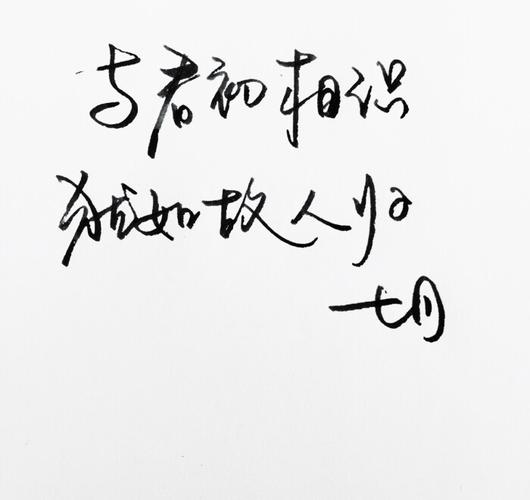 与君初相识
犹如故人归
七月